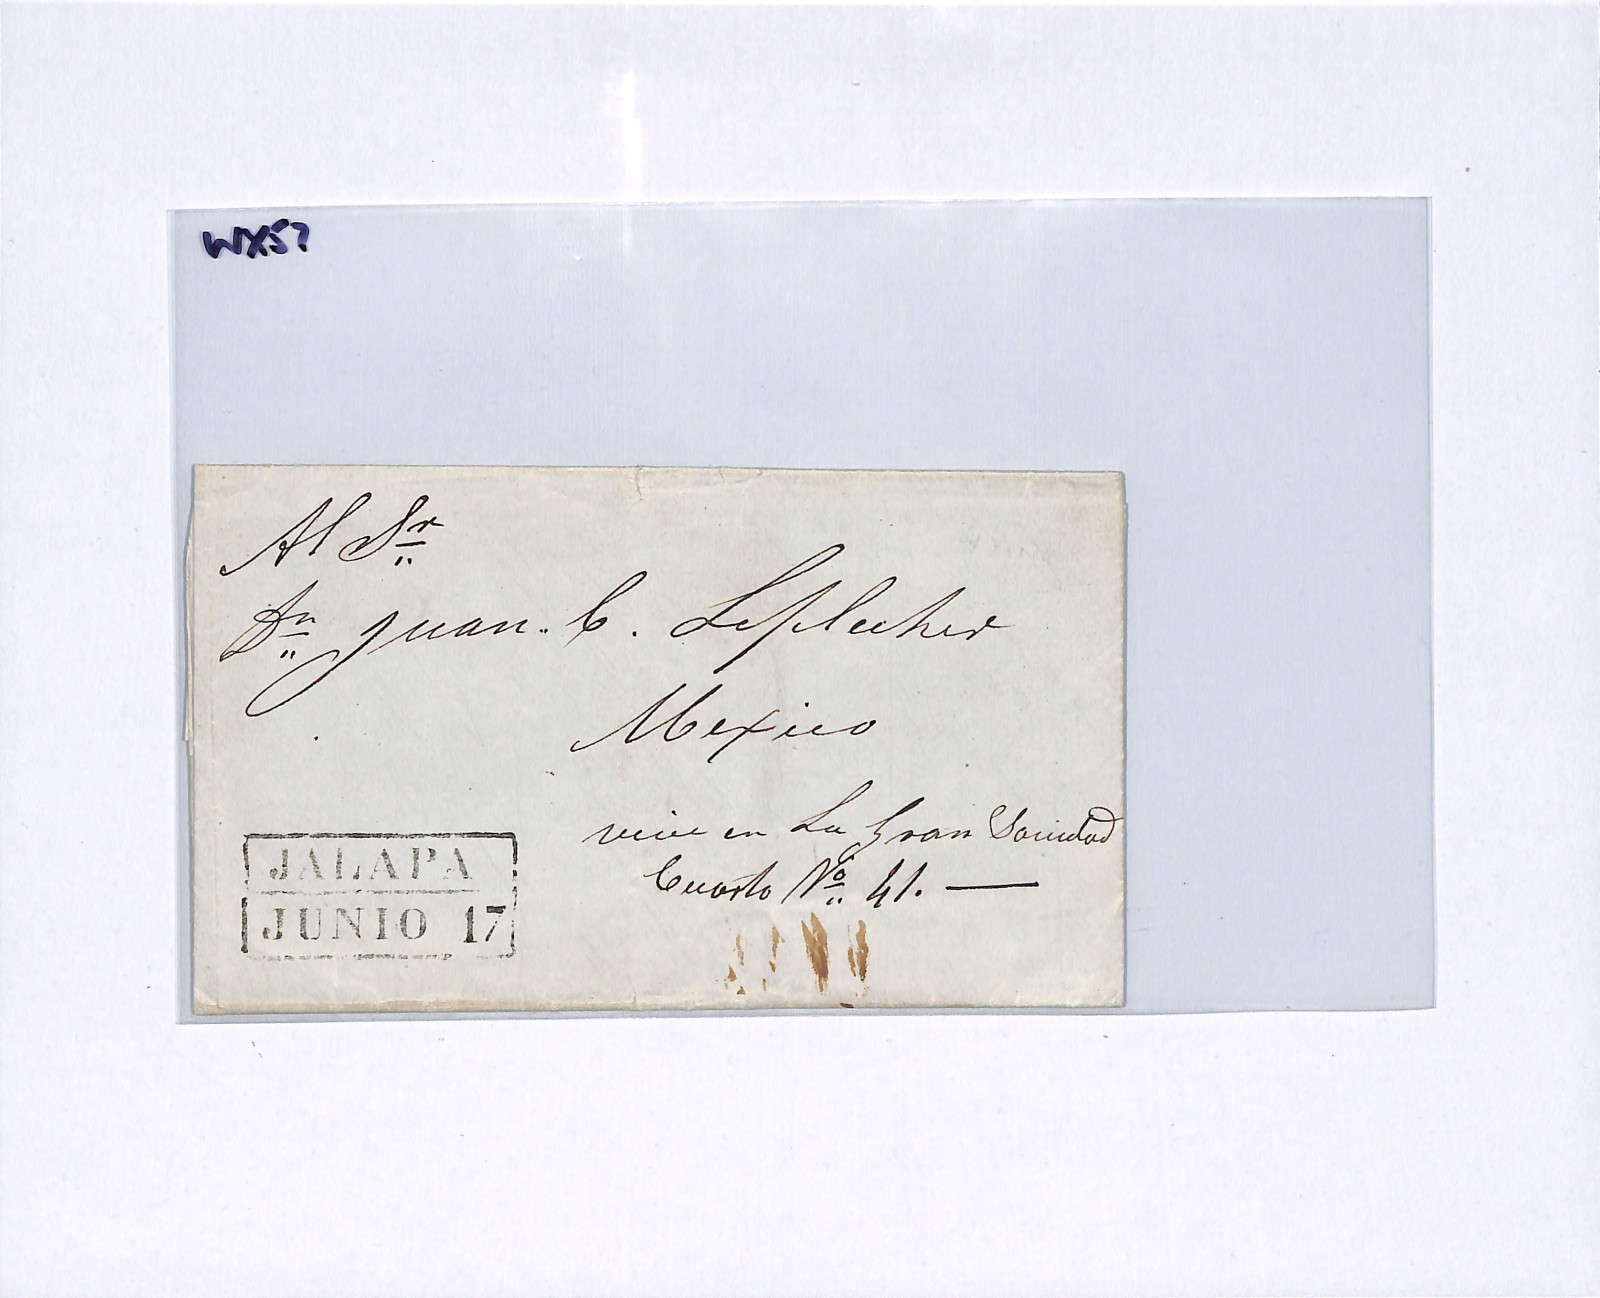 WX57
Al Sr
Dn Juan. C.
Mexico
vive en La Gran Sociedad
Cuarto No 41. —
JALAPA
JUNIO 17